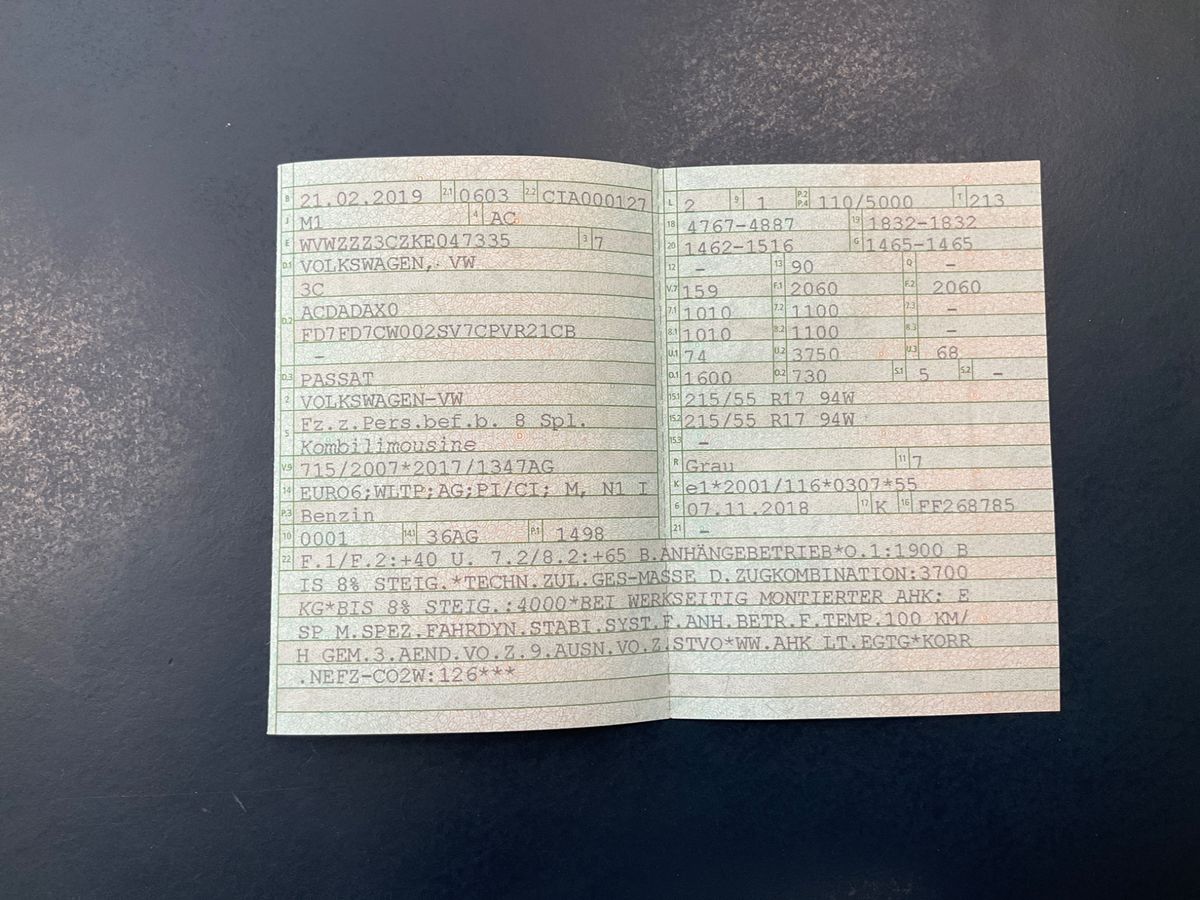 B 21.02.2019 2.1 0603 2.2 CIA000127
J M1 4 AC
E WVWZZZ3CZKE047335 3 7
D.1 VOLKSWAGEN, VW
3C
D.2 ACDADAX0
FD7FD7CW002SV7CPVR21CB
–
D.3 PASSAT
2 VOLKSWAGEN-VW
5 Fz.z.Pers.bef.b. 8 Spl.
Kombilimousine
V.9 715/2007*2017/1347AG
14 EURO6;WLTP;AG;PI/CI; M, N1 I
P.3 Benzin
10 0001 14.1 36AG P.1 1498
L 2 9 1 P.2 P.4 110/5000 T 213
18 4767-4887 19 1832-1832
20 1462-1516 G 1465-1465
12 – 13 90 Q –
V.7 159 F.1 2060 F.2 2060
7.1 1010 7.2 1100 7.3 –
8.1 1010 8.2 1100 8.3 –
U.1 74 U.2 3750 U.3 68
O.1 1600 O.2 730 S.1 5 S.2 –
15.1 215/55 R17 94W
15.2 215/55 R17 94W
15.3 –
R Grau 11 7
K e1*2001/116*0307*55
6 07.11.2018 17 K 16 FF268785
21 –
22 F.1/F.2:+40 U. 7.2/8.2:+65 B.ANHÄNGEBETRIEB*O.1:1900 B
IS 8% STEIG.*TECHN.ZUL.GES-MASSE D.ZUGKOMBINATION:3700
KG*BIS 8% STEIG.:4000*BEI WERKSEITIG MONTIERTER AHK: E
SP M.SPEZ.FAHRDYN.STABI.SYST.F.ANH.BETR.F.TEMP.100 KM/
H GEM.3.AEND.VO.Z.9.AUSN.VO.Z.STVO*WW.AHK LT.EGTG*KORR
.NEFZ-CO2W:126***